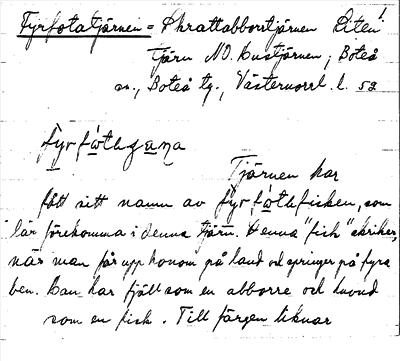 Fyrfotatjärnen = Skrattabborrtjärnen Liten!
tjärn NO. Gustjärnen, Boteå
sn., Boteå tg., Västernorrl. l. 52
fyrføtḥgana
Tjärnen har
fått sitt namn av fyrfotafisken, som
lär förekomma i denna tjärn. Denna "fisk" skriker,
när man får upp honom på land och springer på fyra
ben. Han har fjäll som en abborre och huvud
som en fisk. Till färgen liknar